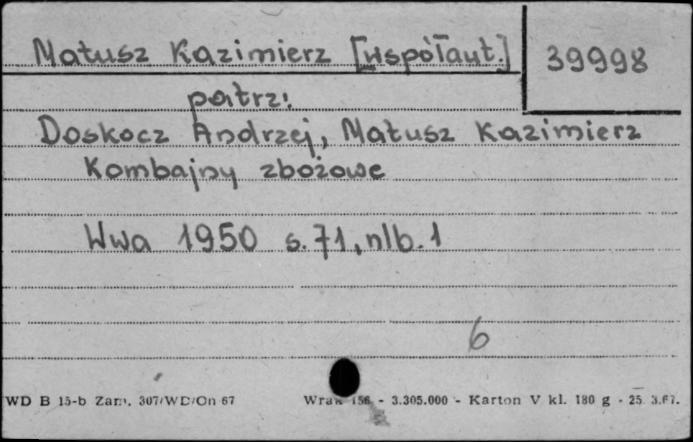 Matusz Kazimierz [współaut.]
39998
patrz:
Doskocz Andrzej, Matusz Kazimierz
Kombajny zbożowe
Wwa 1950 s. 71, nlb. 1
6
WD B 15-b Zam. 307/WD/On 67 156 - 3.305.000 - Karton V kl. 180 g - 25 3.67.